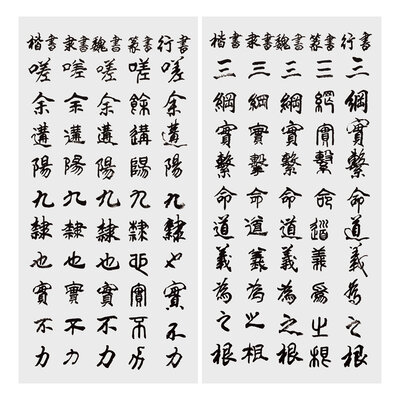 楷書隶書魏書篆書行書
三綱實繫命道義為之根
三綱實繫命道義為之根
三綱實繫命道義為之根
三綱實繫命道義為之根
三綱實繫命道義為之根
楷書隶書魏書篆書行書
嗟余遘陽九隸也實不力
嗟余遘陽九隸也實不力
嗟余遘陽九隸也實不力
嗟餘遘陽九隸也實不力
嗟余遘陽九隸也實不力